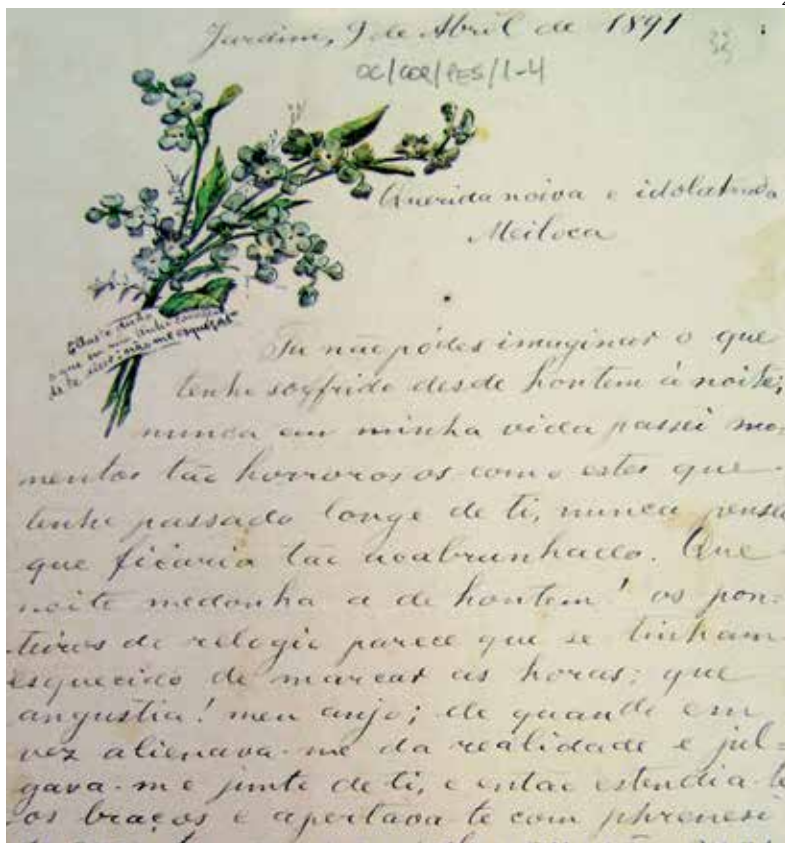 Jardim, 9 de Abril de 1891
33
OC/COR/PES/1-4
Querida noiva e idolatrada
Meiloca
de te não me esqueças
Tu não pódes imaginar o que
tenho soffrido desde hontem á noite;
nunca em minha vida passei mo-
mentos tão horrorosos como estes que
tenho passado longe de ti, nunca pensei
que ficaria tão acabrunhado. Que
noite medonha a de hontem! os pon-
teiros do relogio parece que se tinham
esquecido de marcar as horas; que
angustia! meu anjo; de quando em
vez alienava-me da realidade e jul-
gava-me junto de ti, e então estendia-te
os braços e apertava-te com phrenesi